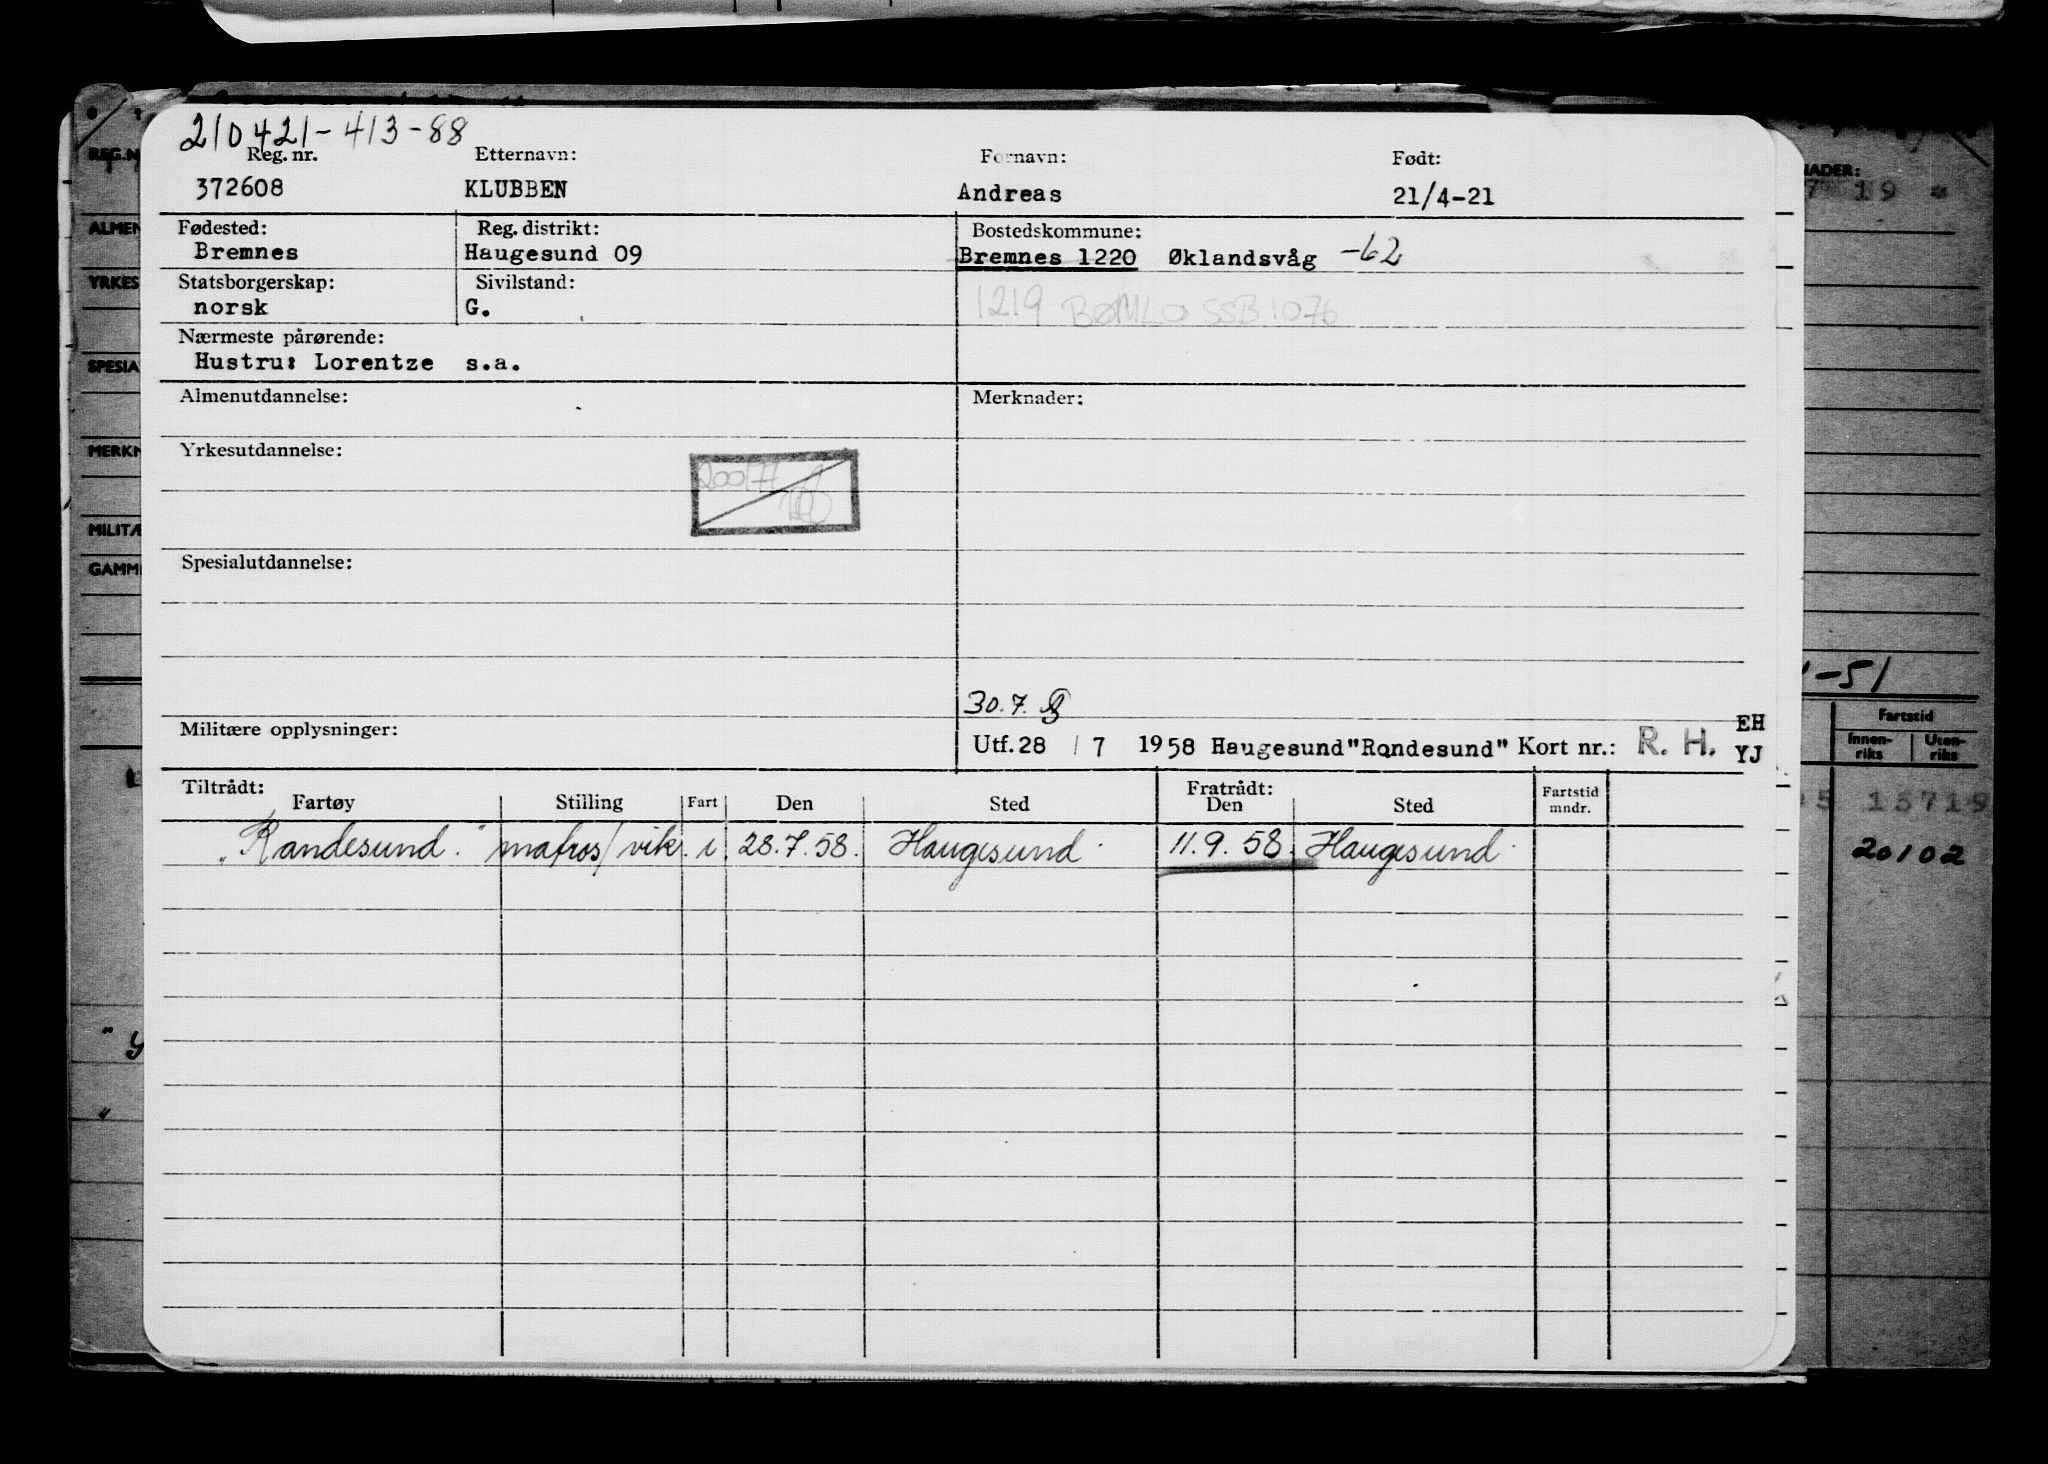 210421-413-88
Reg. nr. Etternavn: Fornavn: Født:
372608 KLUBBEN Andreas 21/4-21
Fødested: Reg. distrikt: Bostedskommune:
Bremnes Haugesund 09 Bremnes 1220 Øklandsvåg -62
Statsborgerskap: Sivilstand:
norsk G. 1219 BØMLO SSB 1076
Nærmeste pårørende:
Hustru: Lorentze s.a.
Almenutdannelse: Merknader:
Yrkesutdannelse:
200177
Spesialutdannelse:
30.7.
Militære opplysninger:
Utf. 28 / 7 1958 Haugesund "Randesund" Kort nr.: R. H. EH
YJ
Tiltrådt: Fratrådt:
Fartøy Stilling Fart Den Sted Den Sted Fartstid mndr.
"Randesund." matros/vik. i. 28.7.58. Haugesund. 11.9.58. Haugesund.
REG.N
ALMEN
YRKES
SPESIA
MERKN
MILITÆ
GAMM
NADER:
7 19
-51
Fartstid
Innen-riks Uten-riks
5 13719
20102